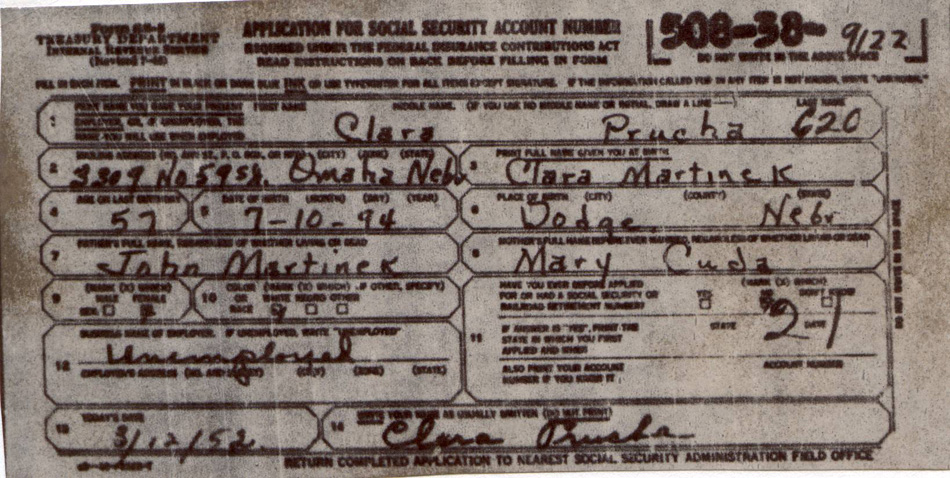 TREASURY DEPARTMENT
INTERNAL REVENUE SERVICE
APPLICATION FOR SOCIAL SECURITY ACCOUNT NUMBER
REQUIRED UNDER THE FEDERAL INSURANCE CONTRIBUTIONS ACT
READ INSTRUCTIONS ON BACK BEFORE FILLING IN FORM
508-38-9122
DO NOT WRITE IN THE ABOVE SPACE
FILL IN EACH ITEM. PRINT IN BLACK OR DARK BLUE INK OR USE TYPEWRITER FOR ALL ITEMS EXCEPT SIGNATURE. IF THE INFORMATION CALLED FOR IN ANY ITEM IS NOT KNOWN, WRITE "UNKNOWN."
1 FIRST NAME MIDDLE NAME. (IF YOU USE NO MIDDLE NAME OR INITIAL, DRAW A LINE —) LAST NAME
Clara Prucha 620
2 3 PRINT FULL NAME GIVEN YOU AT BIRTH
Omaha Nebr Clara Martinek
4 AGE ON LAST BIRTHDAY 5 DATE OF BIRTH (MONTH) (DAY) (YEAR) 6 PLACE OF BIRTH (CITY) (COUNTY) (STATE)
57 7-10-94 Dodge Nebr
7 FATHER'S FULL NAME, REGARDLESS OF WHETHER LIVING OR DEAD 8 MOTHER'S FULL NAME BEFORE EVER MARRIED, REGARDLESS OF WHETHER LIVING OR DEAD
John Martinek Mary Cuda
9 SEX (MARK (X) WHICH) MALE FEMALE
10 COLOR OR RACE (MARK (X) WHICH) (IF OTHER, SPECIFY) WHITE NEGRO OTHER
11 HAVE YOU EVER BEFORE APPLIED FOR OR HAD A SOCIAL SECURITY OR RAILROAD RETIREMENT NUMBER? (MARK (X) WHICH) YES NO DON'T KNOW
IF ANSWER IS "YES", PRINT THE STATE IN WHICH YOU FIRST APPLIED AND WHEN STATE DATE
21
ALSO PRINT YOUR ACCOUNT NUMBER IF YOU KNOW IT ACCOUNT NUMBER
12 BUSINESS NAME OF EMPLOYER. IF UNEMPLOYED, WRITE "UNEMPLOYED"
Unemployed
EMPLOYER'S ADDRESS (NO. AND STREET) (CITY) (ZONE) (STATE)
13 TODAY'S DATE 14 WRITE YOUR NAME AS USUALLY WRITTEN (DO NOT PRINT)
3/12/52 Clara Prucha
RETURN COMPLETED APPLICATION TO NEAREST SOCIAL SECURITY ADMINISTRATION FIELD OFFICE